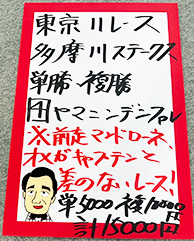 東京11レース
多摩川ステークス
単勝・複勝
ヤマニンデンファレ
※前走マドローネ、
オメガキャプテンと
差のないレース!
単5000 複10000円
計15000円